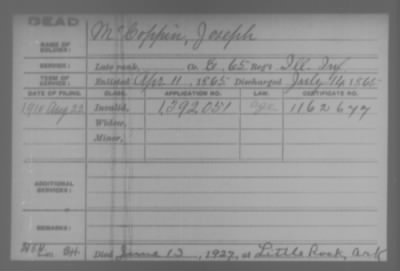 DEAD
NAME OF SOLDIER: McCoppin, Joseph
SERVICE: Late rank, Co. G. 65 Reg't Ill. Inf.
TERM OF SERVICE: Enlisted Apr 11, 1865 Discharged July 14 1865
DATE OF FILING. CLASS. APPLICATION NO. LAW. CERTIFICATE NO.
1910 Aug 22 Invalid, 1,392,051 age 1162677
Widow,
Minor,
ADDITIONAL SERVICES:
REMARKS:
Died June 13, 1927, at Little Rock, Ark